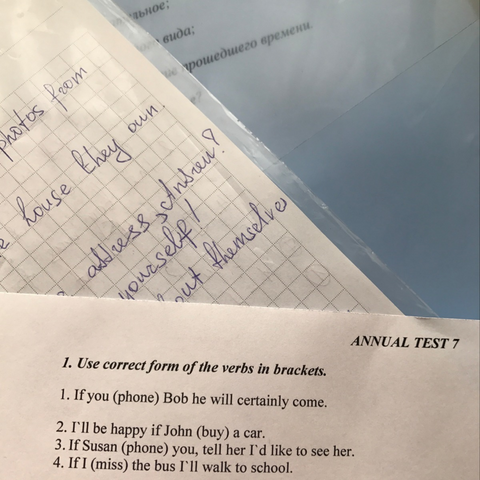 вида;
прошедшего времени.
photos from
house they own.
address, Andrew?
yourself!
out themselves
ANNUAL TEST 7
1. Use correct form of the verbs in brackets.
1. If you (phone) Bob he will certainly come.
2. I`ll be happy if John (buy) a car.
3. If Susan (phone) you, tell her I`d like to see her.
4. If I (miss) the bus I`ll walk to school.